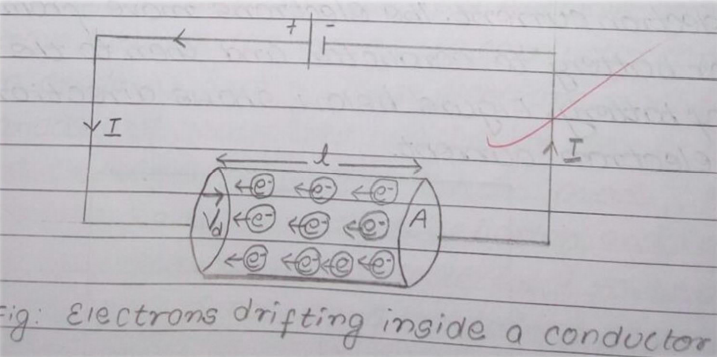 + -
I
I
l
e- e- e-
Vd e- e- e- A
e- e- e- e-
Fig: Electrons drifting inside a conductor